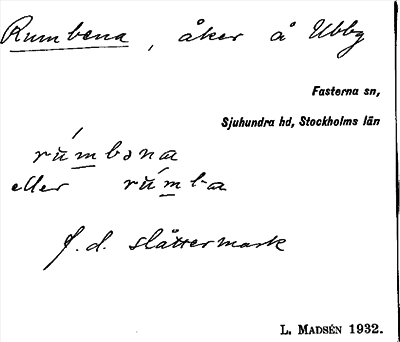 Rumbena, åker å Ubby
Fasterna sn,
Sjuhundra hd, Stockholms län
rúmbəna
eller rúmba
f.d. slåttermark
L. MADSÉN 1932.